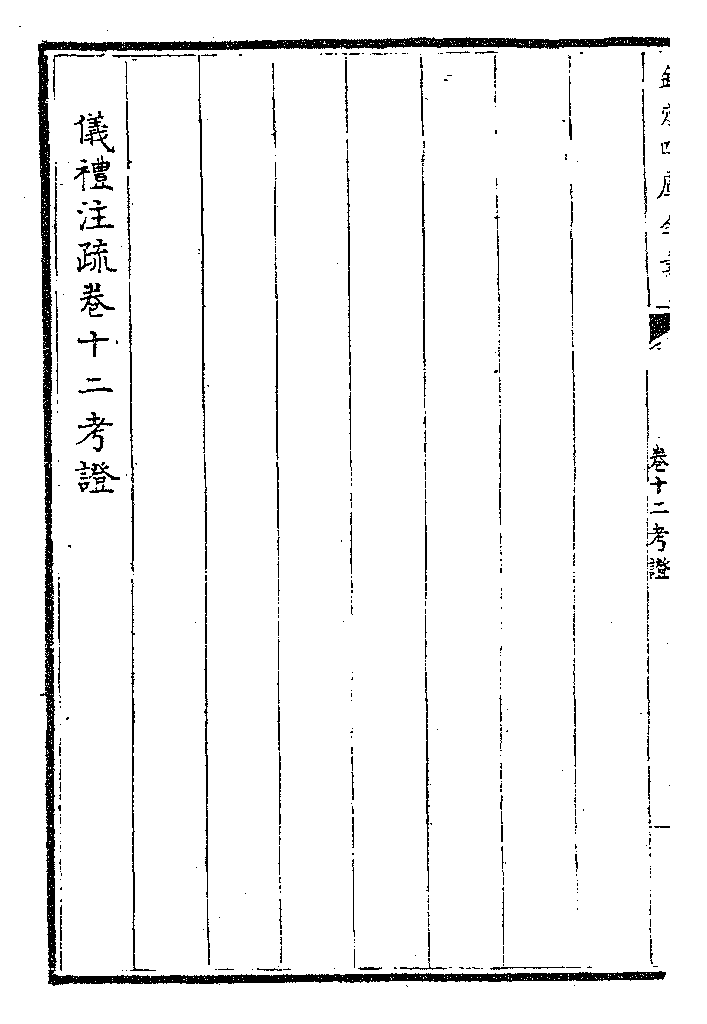 欽定四庫全書
卷十二考證
儀禮注疏卷十二考證